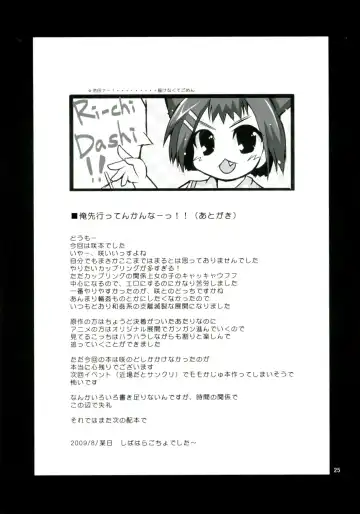 Ri-chi
Dashi
!!
■俺先行ってんかんなーっ！！（あとがき）
どうもー
今回は咲本でした
いやー、咲いいっすよね
自分でもまさかここまではまるとは思っておりませんでした
やりたいカップリングが多すぎる！
ただカップリングの関係上女の子のキャッキャウフフ
中心になるので、エロにするのにかなり苦労しました
一番やりやすかったのが、咲とのどっちですので
あんまり輪姦ものとかにしたくなかったので
いつもどおり和姦系の支離滅裂な展開になりました
原作の方はちょうど決着がついたあたりなのに
アニメの方はオリジナル展開でガンガン進んでいくので
見てるこっちはハラハラしながらも割りと楽しんで
追っていくことができました
ただ今回の本は咲のどしかかけなかったのが
本当に心残りだったです
次回イベント（近場だとサンクリ）でモモかじゅ本作ってしまいそうで
怖い
なんかいろいろ書き足りないんですが、時間の関係で
この辺で失礼
それではまた次の配本で
2009/8/某日　しばはらごちょでした～
25